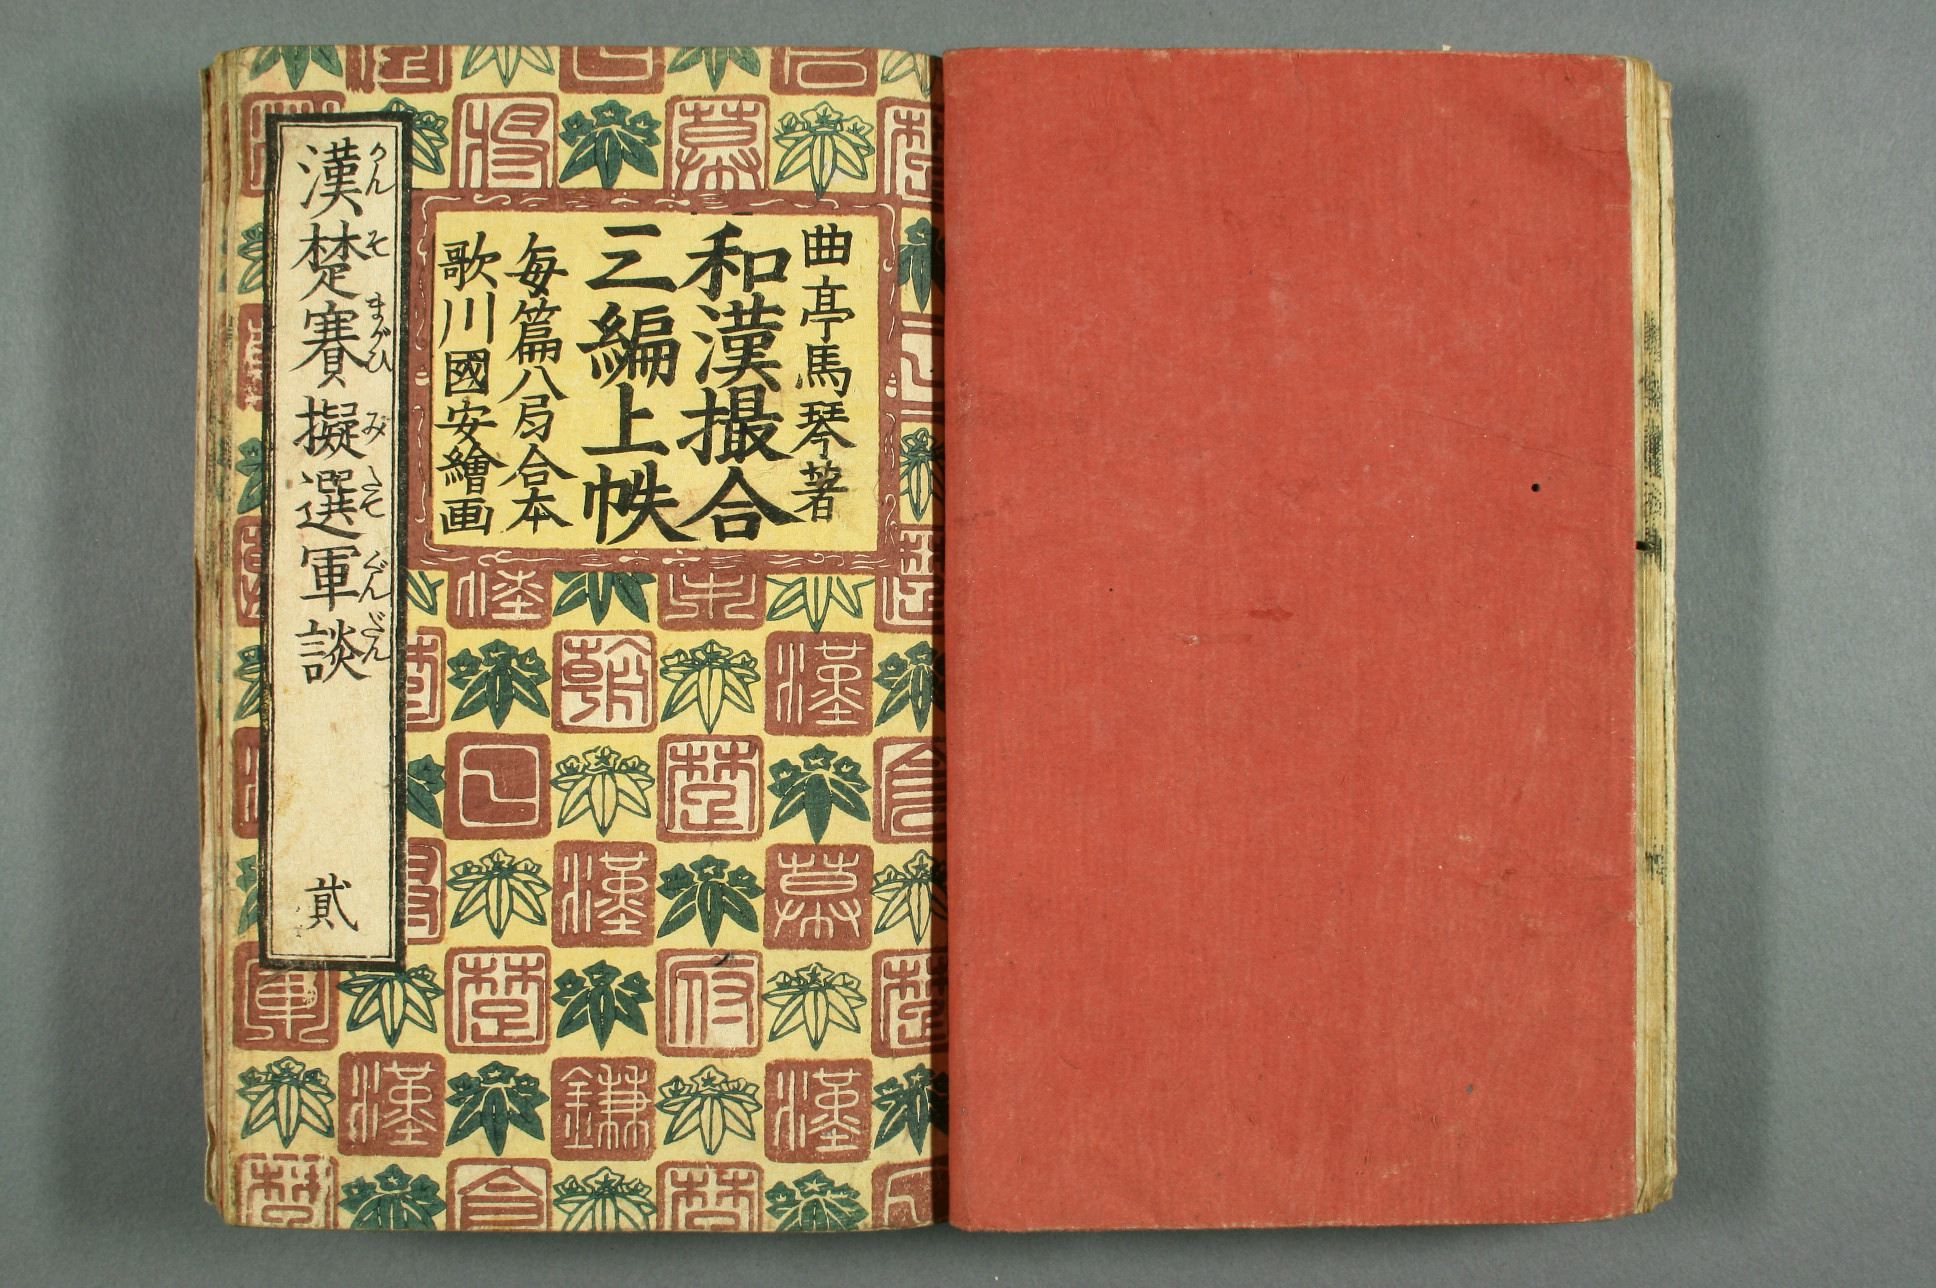 曲亭馬琴著
和漢撮合
三編上帙
每篇八局合本
歌川國安繪画
漢楚賽擬選軍談
かんそまがひみたてぐんだん
貳